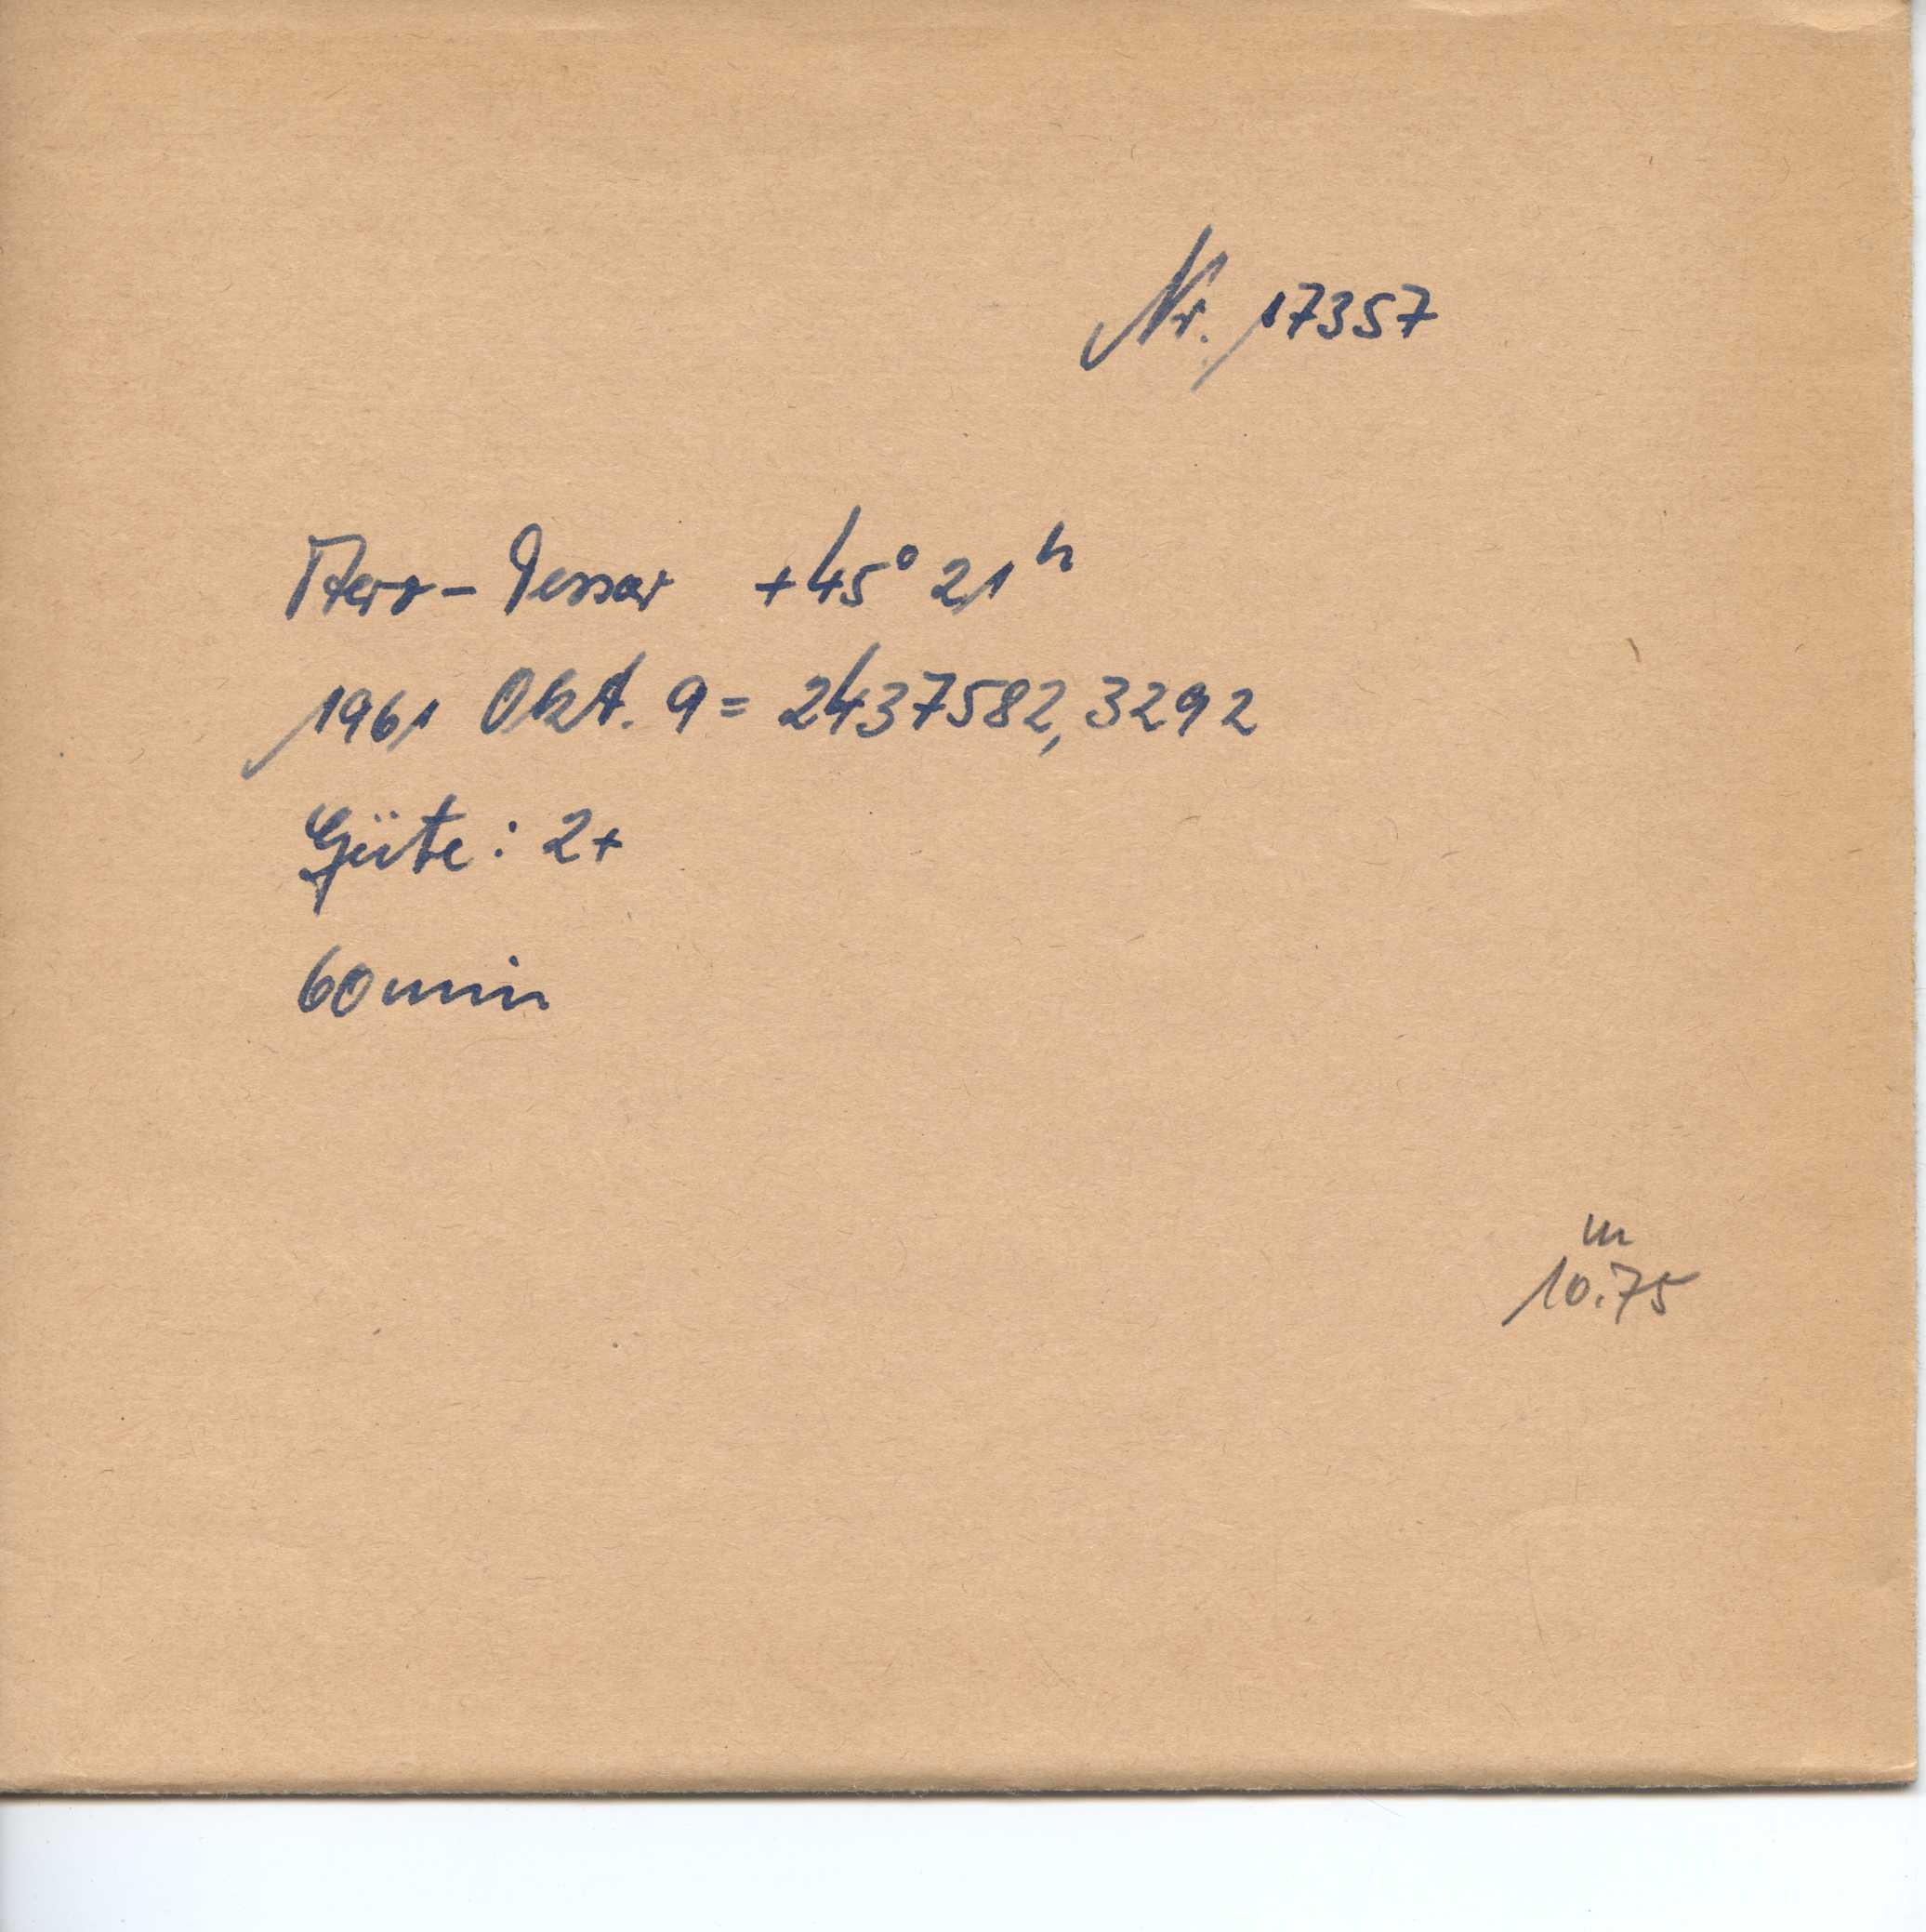 Nr. 17357
Aero-Tessar +45° 21ʰ
1961 Okt. 9 = 2437582,3292
Güte: 2+
60 min
m
10.75